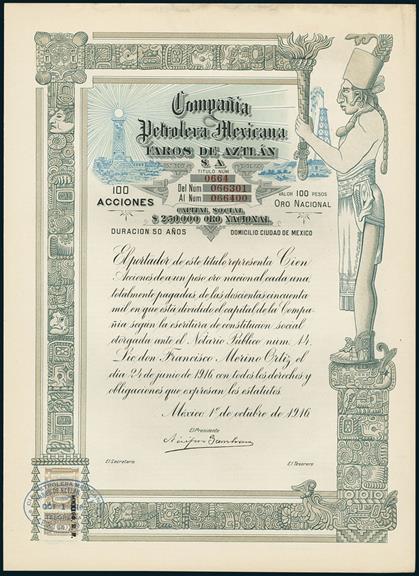 Compañia
Petrolera Mexicana
FAROS DE AZTLÁN
S A
TITULO NUM
0664
100
ACCIONES
Del Num 066301
Al Num 066400
VALOR 100 PESOS
ORO NACIONAL
CAPITAL SOCIAL
$ 250.000 ORO NACIONAL
DURACION 50 AÑOS
DOMICILIO CIUDAD DE MEXICO
El portador de este título representa Cien
Acciones de a un peso oro nacional cada una,
totalmente pagadas, de las doscientas cincuenta
mil en que está dividido el capital de la Compa-
ñia segun la escritura de constitucion social
otorgada ante el Notario Público num. 14.
Lic don Francisco Merino Ortiz el
día 24 de junio de 1916 con todos los derechos y
obligaciones que expresan los estatutos.
México 1º de octubre de 1916
El Presidente
El Secretario
El Tesorero